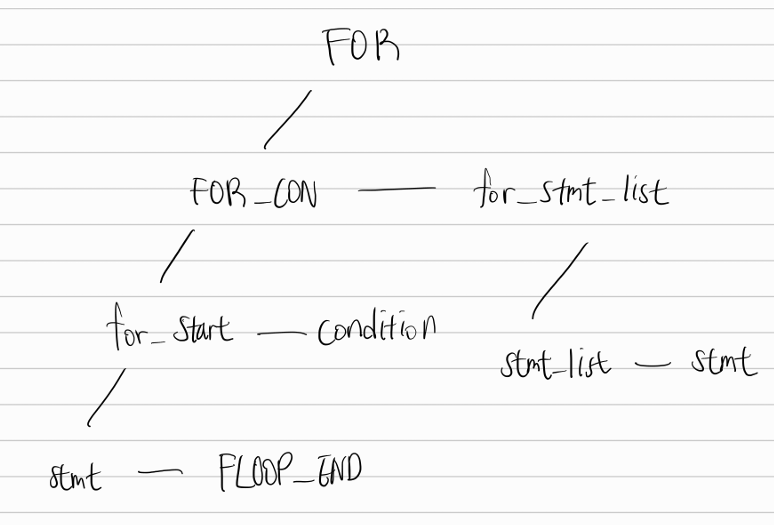 FOR
FOR_CON for_stmt_list
for_start condition
stmt_list stmt
stmt FLOOP_END